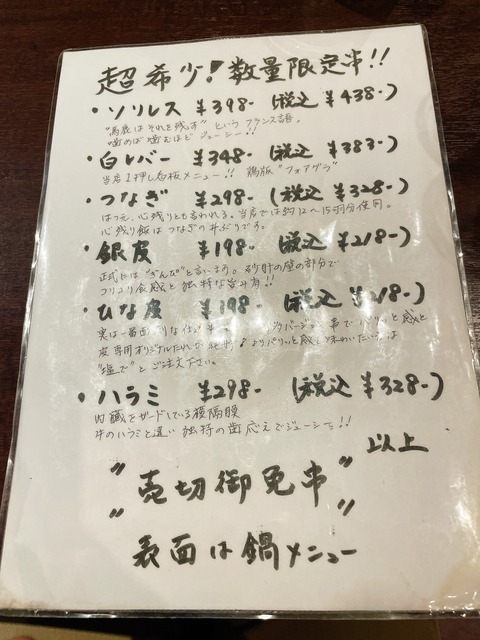 超希少!数量限定串!!
・ソリレス ¥398- (税込 ¥438-)
"馬鹿はそれを残す" という フランス語。
噛めば噛むほど ジューシー!!
・白レバー ¥348- (税込 ¥383-)
当店1押し看板メニュー!! 鶏版 "フォアグラ"
・つなぎ ¥298- (税込 ¥328-)
はつ元、心残りとも言われる。当店では約12〜15羽分使用。
心残り飯はつなぎの丼ぶりです。
・銀皮 ¥198- (税込 ¥218-)
正式には "ぎんぴ" と言います。砂肝の壁の部分で
コリコリ食感と 独特な旨み有!!
・ひな皮 ¥198- (税込 ¥218-)
実は一番面
皮専用オリジナルたれで よりパリッと感
"塩で" と ご注文下さい。
・ハラミ ¥298- (税込 ¥328-)
内臓をガードしている横隔膜
牛のハラミと違い 独特の歯応えでジューシー!!
以上
"売切御免串"
表面は鍋メニュー